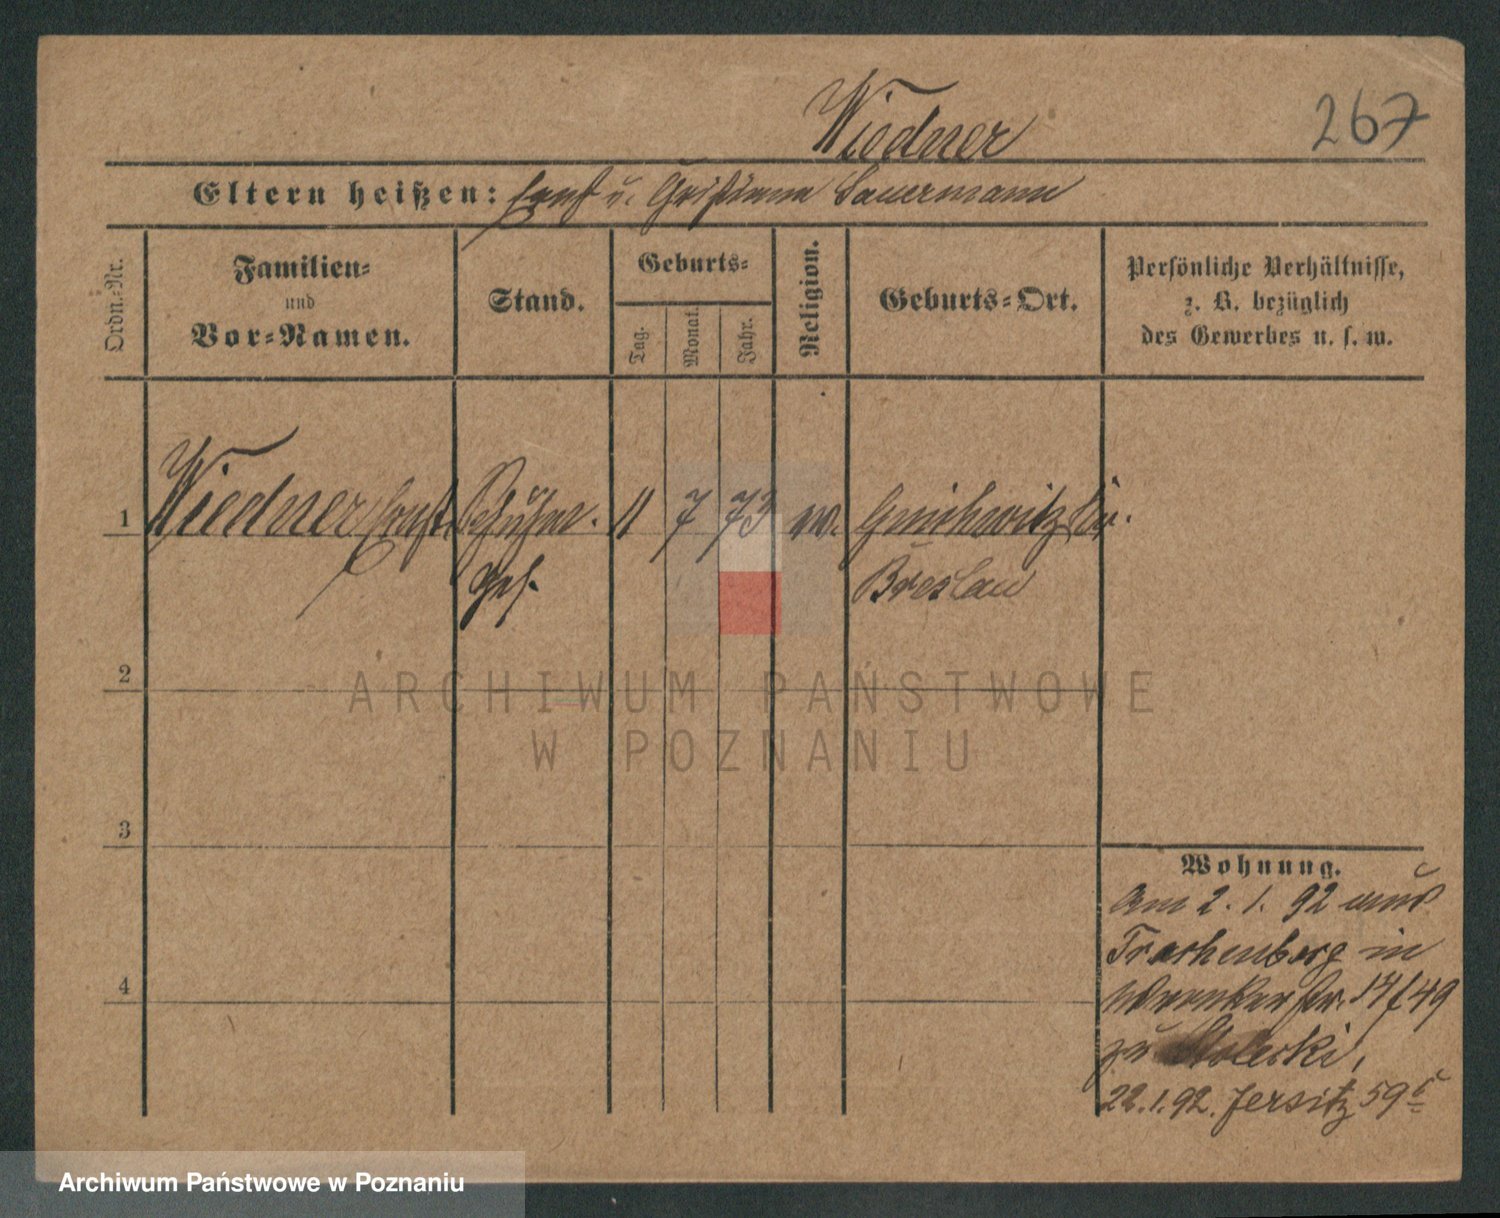 267
Wiedner
Eltern heißen: Ernst u. Christiana Sauermann
Ordn.-Nr.
Familien-
und
Vor-Namen.
Stand.
Geburts-
Tag.
Monat.
Jahr.
Religion.
Geburts-Ort.
Persönliche Verhältnisse,
z. B. bezüglich
des Gewerbes u. s. w.
1 Wiedner Ernst Schuhm. 11 7 73 ev. Gnichwitz Kr.
ges. Breslau
ARCHIWUM PAŃSTWOWE
W POZNANIU
2
3
4
Wohnung.
Am 2. 1. 92 aus
Trachenberg in
Wronkerstr. 17/49
zu
22.1.92. Jersitz 59
Archiwum Państwowe w Poznaniu